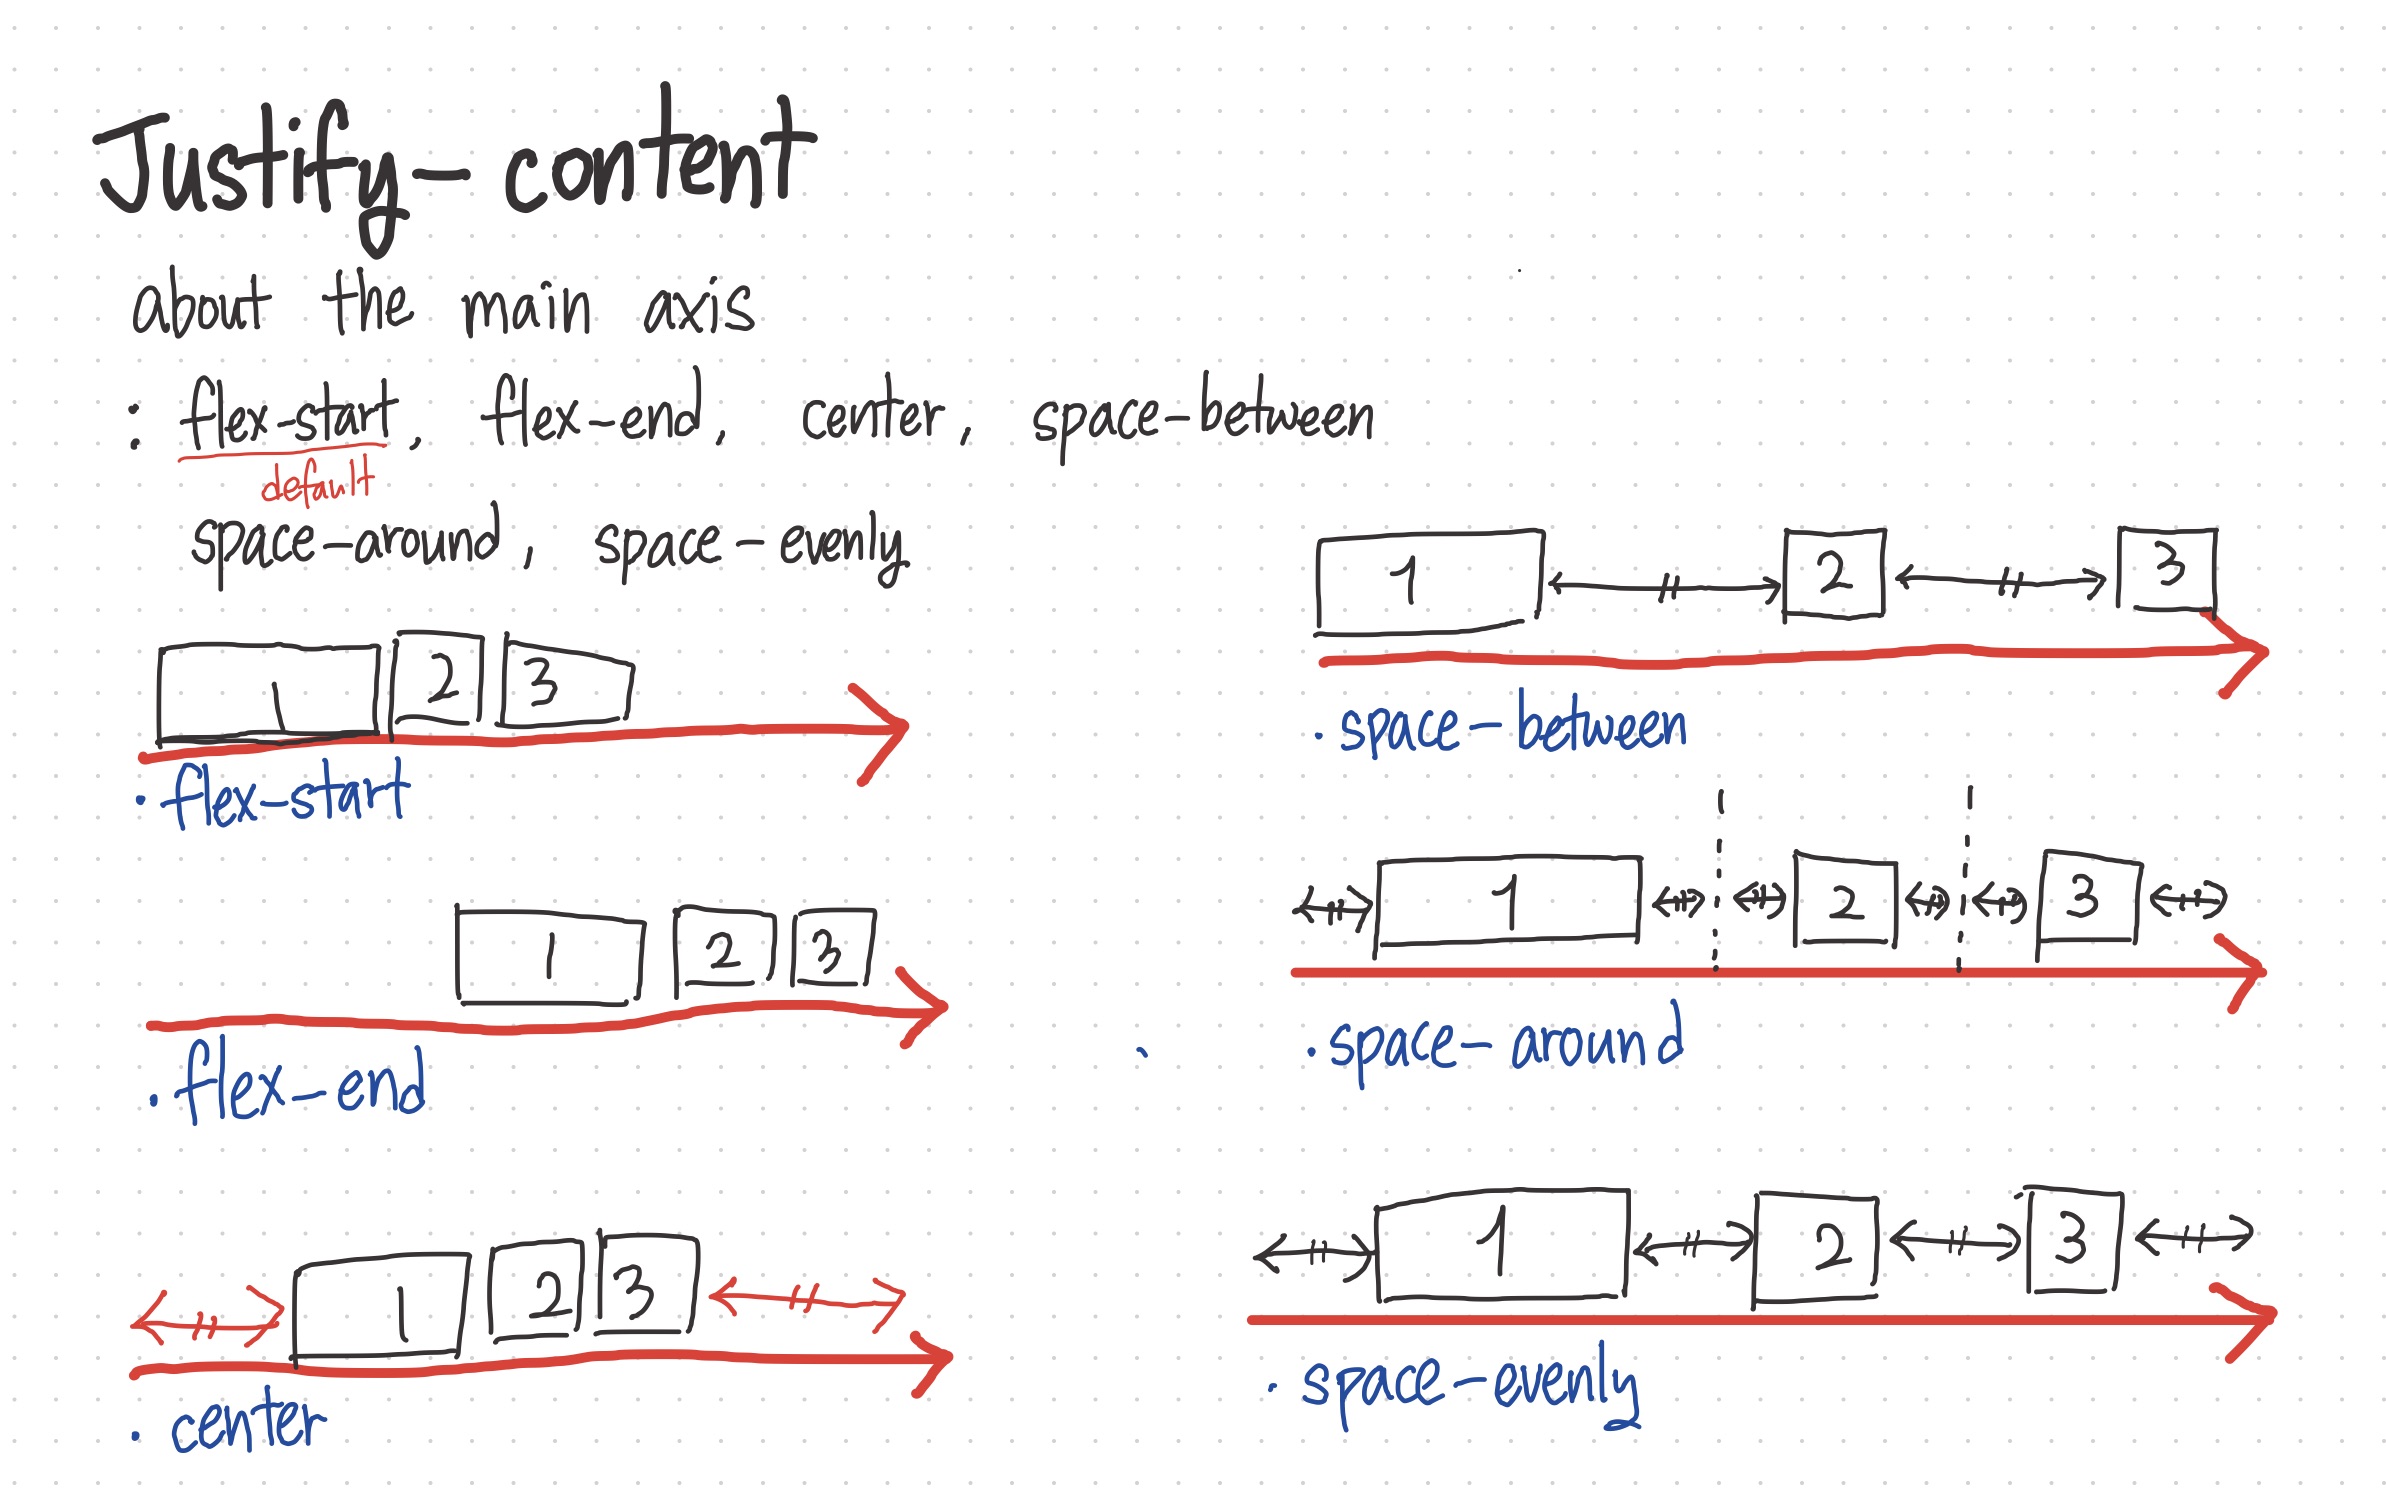 Justify-content
about the main axis
: flex-start, flex-end, center, space-between
default
space-around, space-evenly
1 2 3
· flex-start
1 2 3
· flex-end
1 2 3
· center
1 2 3
· space-between
1 2 3
· space-around
1 2 3
· space-evenly